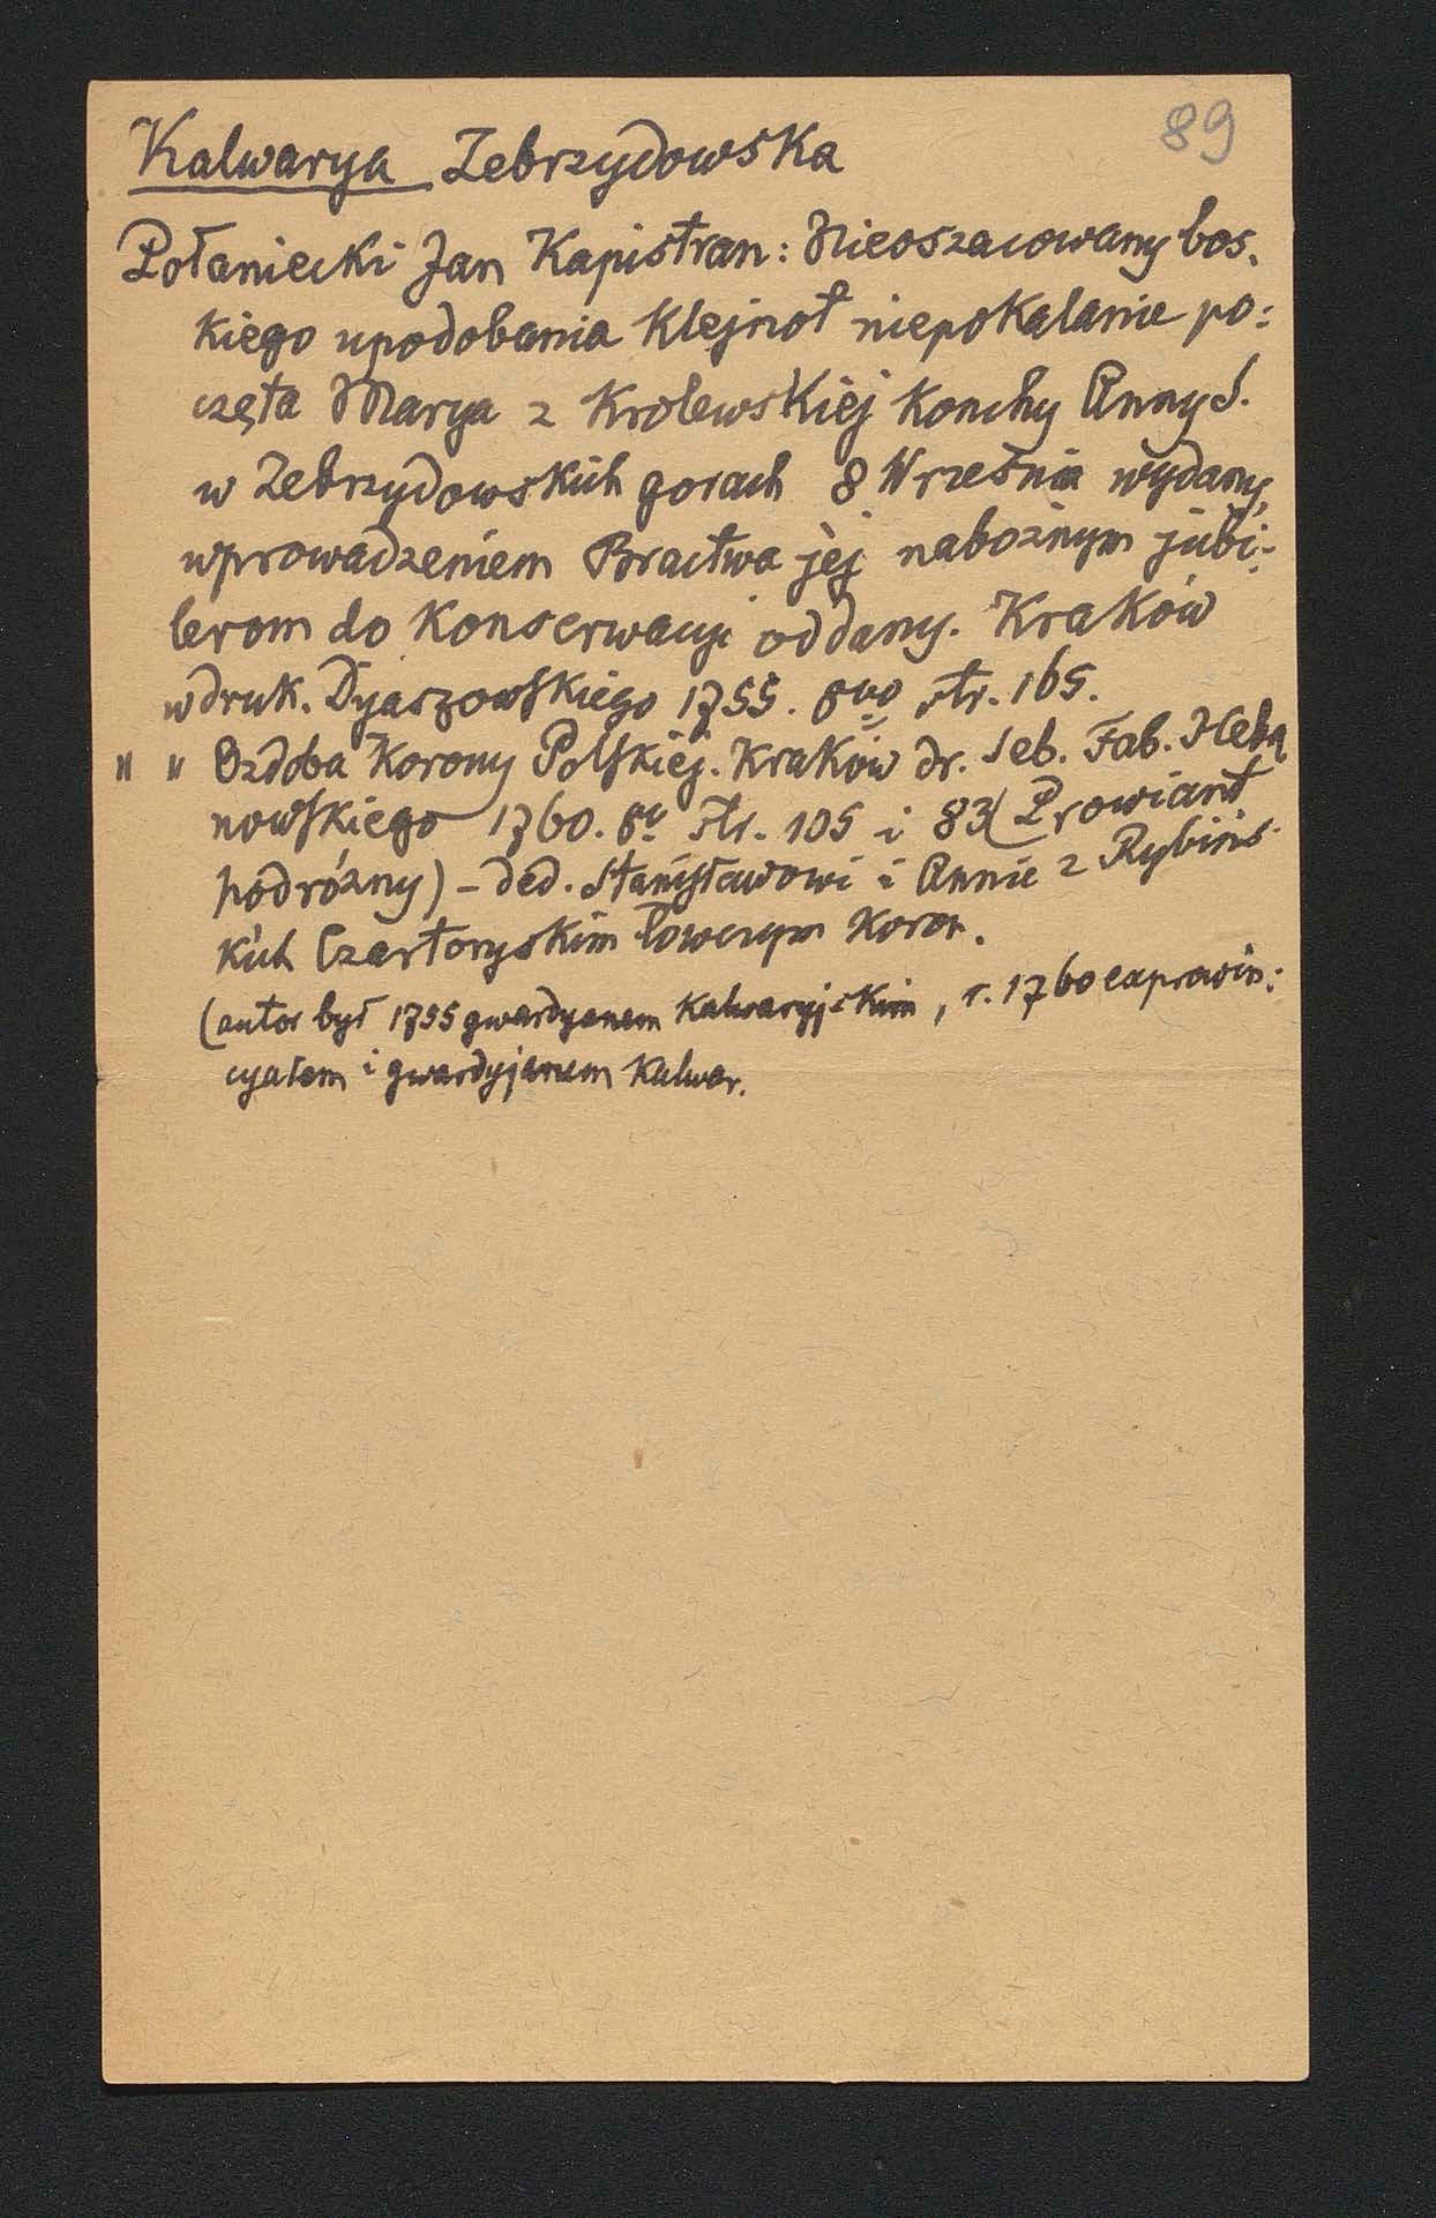 89
Kalwarya Zebrzydowska
Połaniecki Jan Kapistran: Nieoszacowany bos.
kiego upodobania klejnot niepokalanie po:
częta Marya z Krolewskiej konchy Anny S.
w Zebrzydowskich gorach 8 Września wydany,
wprowadzeniem Bractwa jej nabożnym jubi:
lerom do konserwacyi oddany. Kraków
w druk. Dyaszowskiego 1755. 8vo str. 165.
" " Ozdoba Korony Polskiej. Kraków dr. Seb. Fab. Heba
nowskiego 1760. 8v str. 105 i 83 (Prowiant
podróżny) - ded. Stanisławowi i Annie z Rybińs
kich Czartoryskim łowczym koron.
(autor był 1755 gwardyanem kalwaryjskim, r. 1760 exprowin:
cyałem i gwardyjanem kalwar.